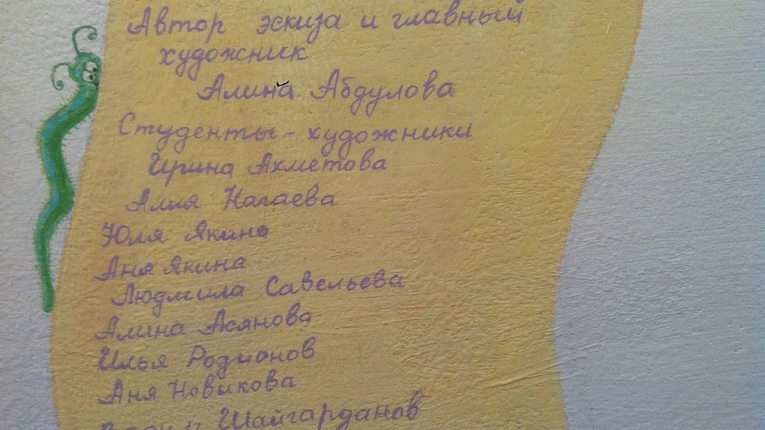 Автор эскиза и главный
художник
Алина Абдулова
Студенты-художники
Ирина Ахметова
Алия Нагаева
Юля Якина
Аня Якина
Людмила Савельева
Алина Асянова
Илья Родионов
Аня Новикова
Шайгарданов